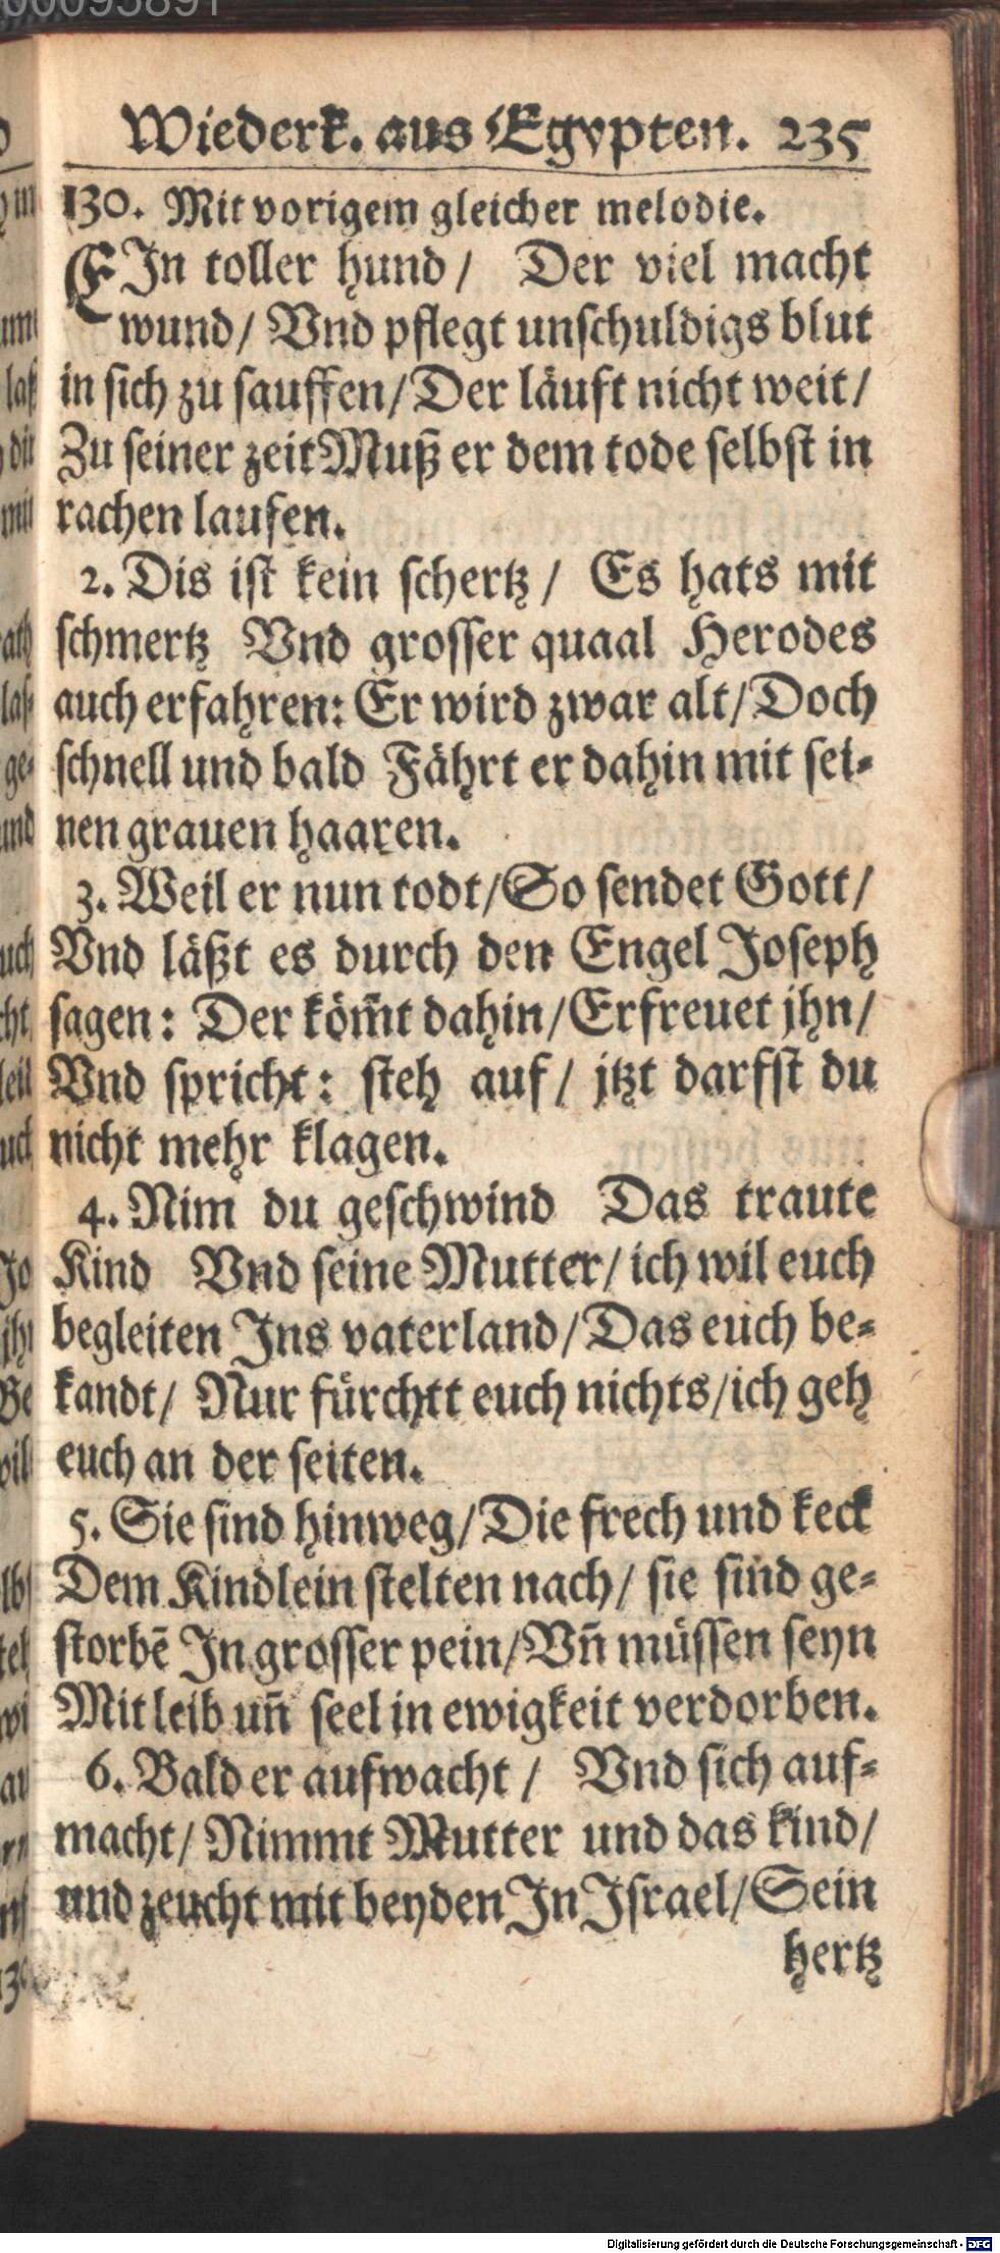 00095891
Wiederk. aus Egypten. 235
130. Mit vorigem gleicher melodie.
EIn toller hund / Der viel macht
wund / Vnd pflegt unschuldigs blut
in sich zu sauffen / Der läuft nicht weit /
Zu seiner zeit Muß er dem tode selbst in
rachen laufen.
2. Dis ist kein schertz / Es hats mit
schmertz Vnd grosser quaal Herodes
auch erfahren: Er wird zwar alt / Doch
schnell und bald Fährt er dahin mit sei-
nen grauen haaren.
3. Weil er nun todt / So sendet Gott /
Vnd läßt es durch den Engel Joseph
sagen: Der köm̃t dahin / Erfreuet jhn /
Vnd spricht: steh auf / jtzt darfst du
nicht mehr klagen.
4. Nim du geschwind Das traute
Kind Vnd seine Mutter / ich wil euch
begleiten Ins vaterland / Das euch be-
kandt / Nur fürchtt euch nichts / ich geh
euch an der seiten.
5. Sie sind hinweg / Die frech und keck
Dem Kindlein stelten nach / sie sind ge-
storbē In grosser pein / Vñ müssen seyn
Mit leib uñ seel in ewigkeit verdorben.
6. Bald er aufwacht / Vnd sich auf-
macht / Nimmt Mutter und das kind /
und zeucht mit beyden In Israel / Sein
hertz
Digitalisierung gefördert durch die Deutsche Forschungsgemeinschaft - DFG